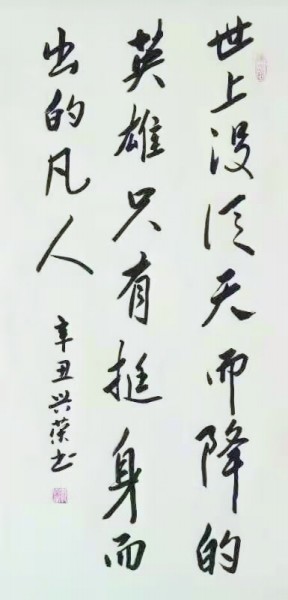 世上没从天而降的
英雄只有挺身而
出的凡人
辛丑兴荣书